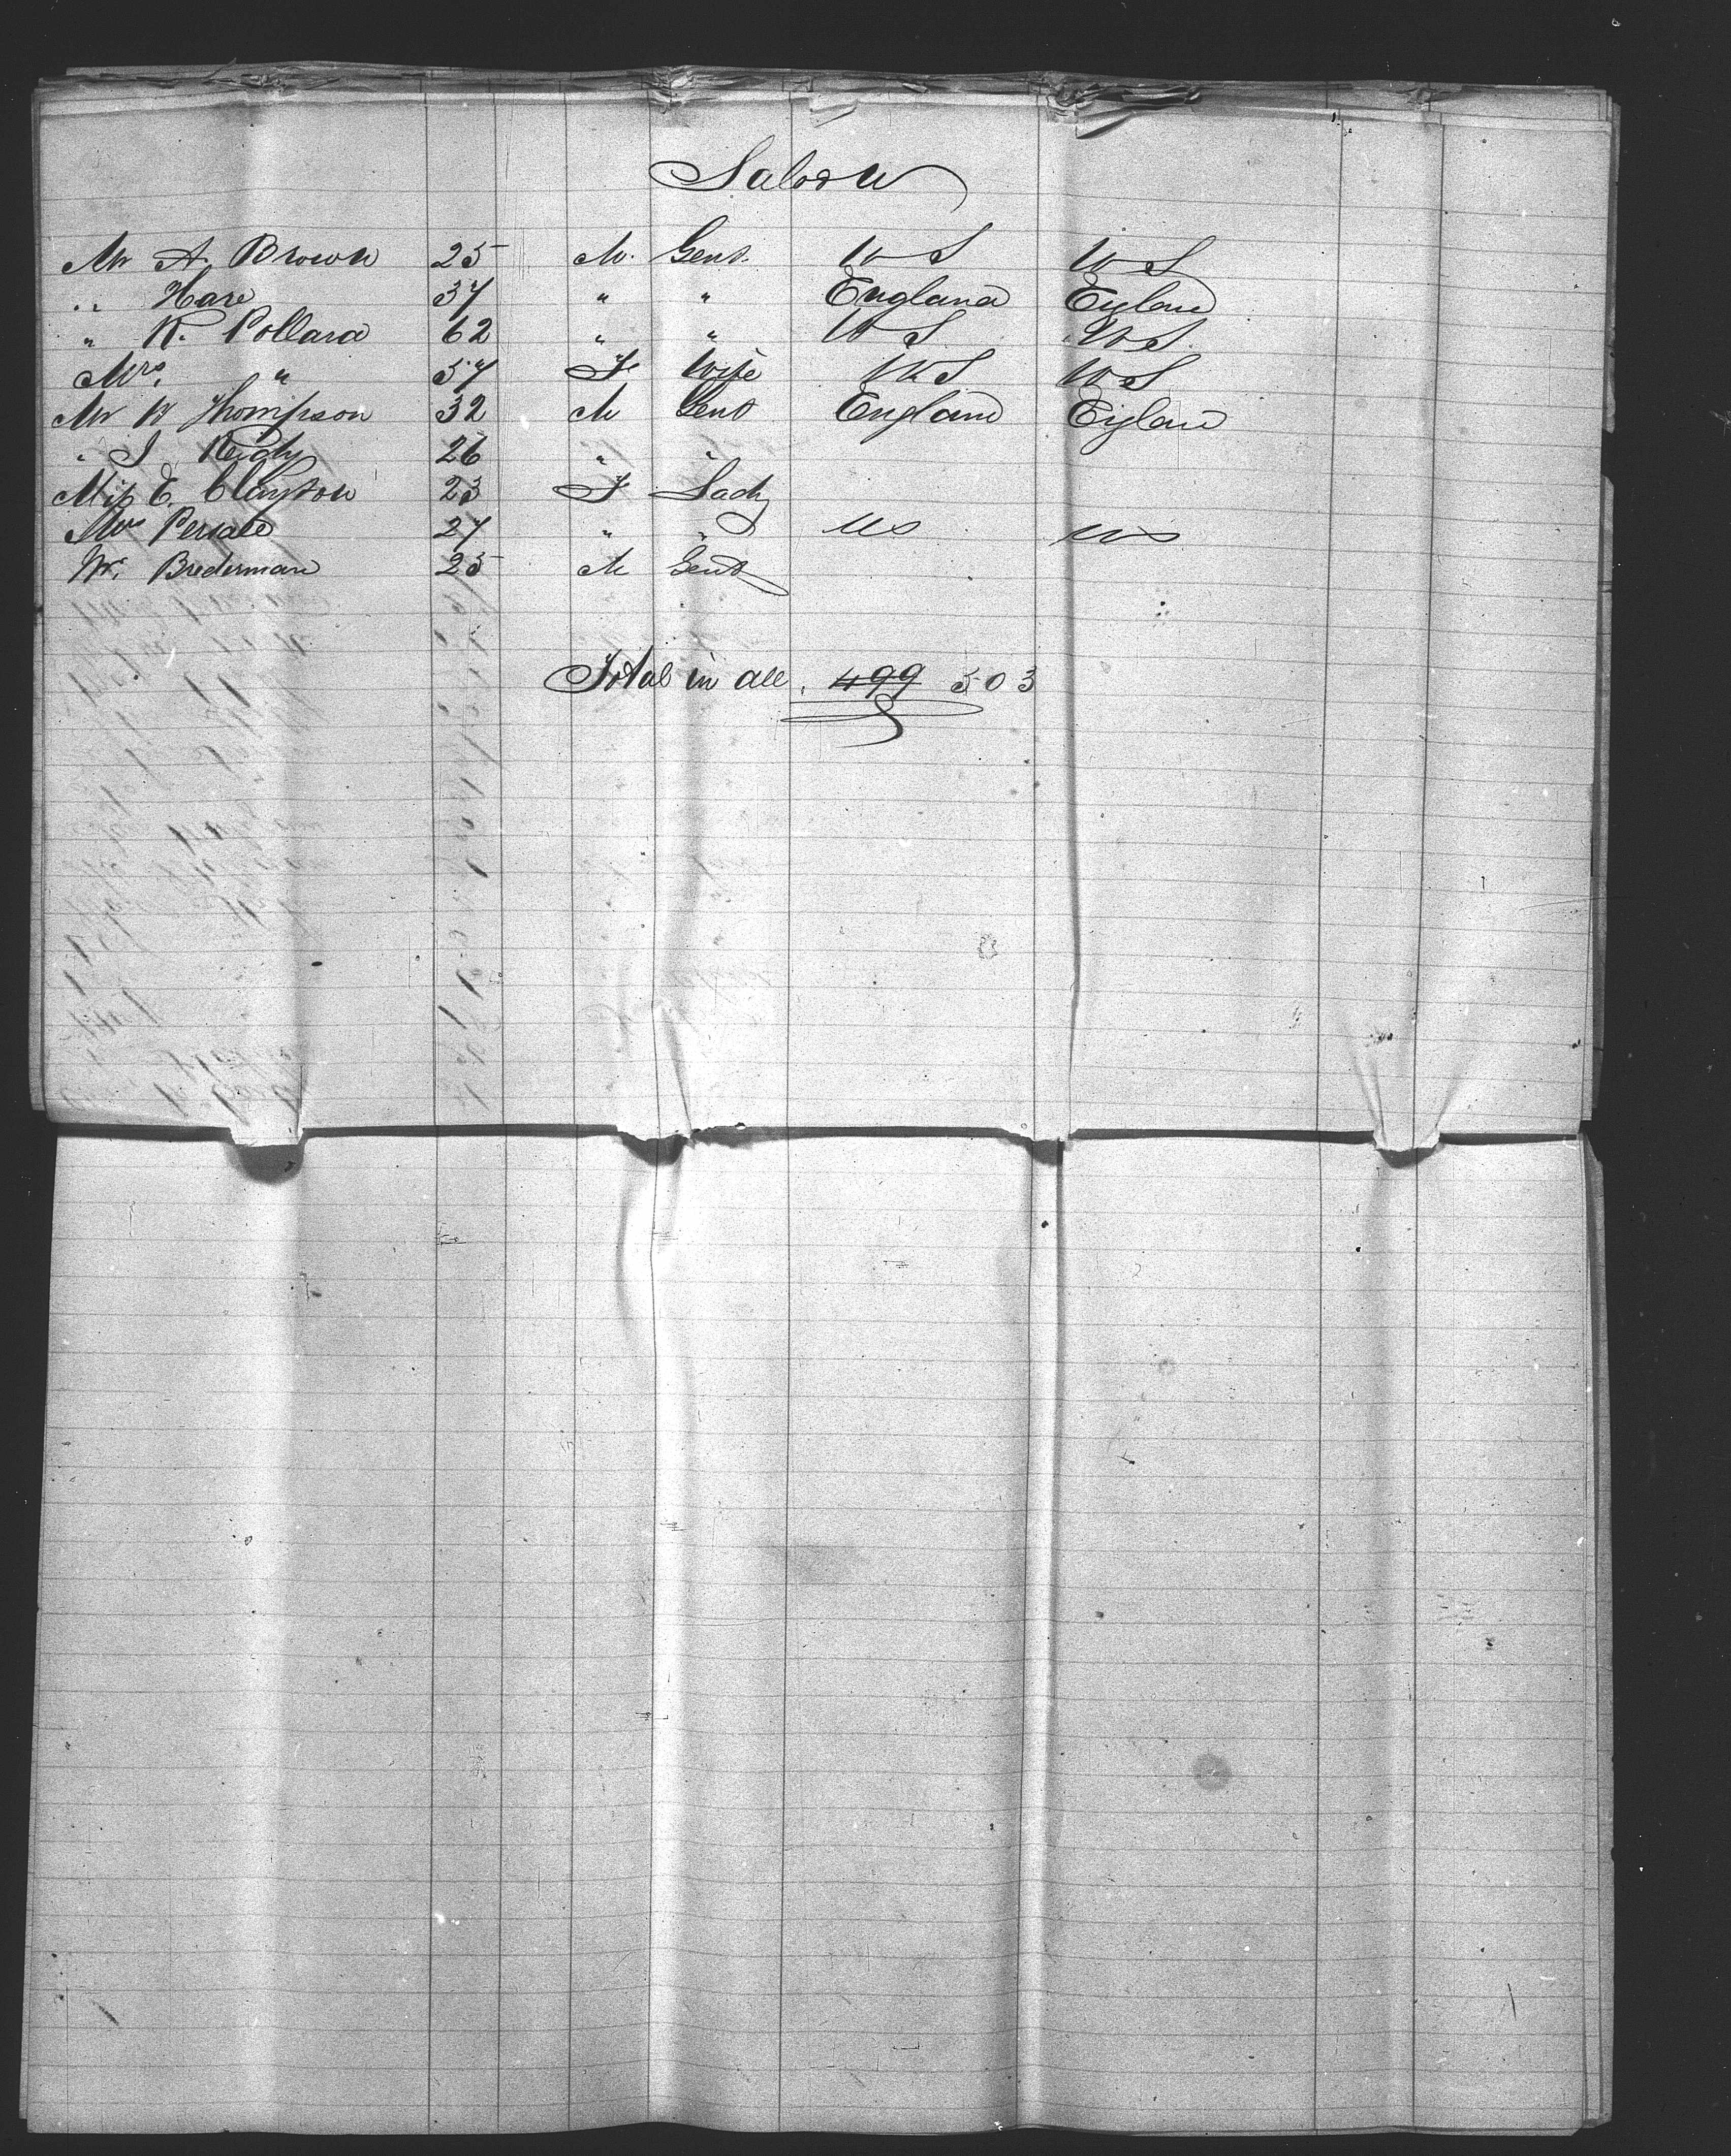 Saloon
Mr A. Brown 25 M. Gent. U S U S
" Hare 37 " " England England
" R. Pollard 62 " " U S U S
Mrs. " 57 F Wife U S U S
Mr W Thompson 32 M Gent England England
" J 26 " "
Miss E. Clayton 23 F Lady
Mrs 27 " " US US
Mr. Brederman 25 M Gent
Total in all. 499 503